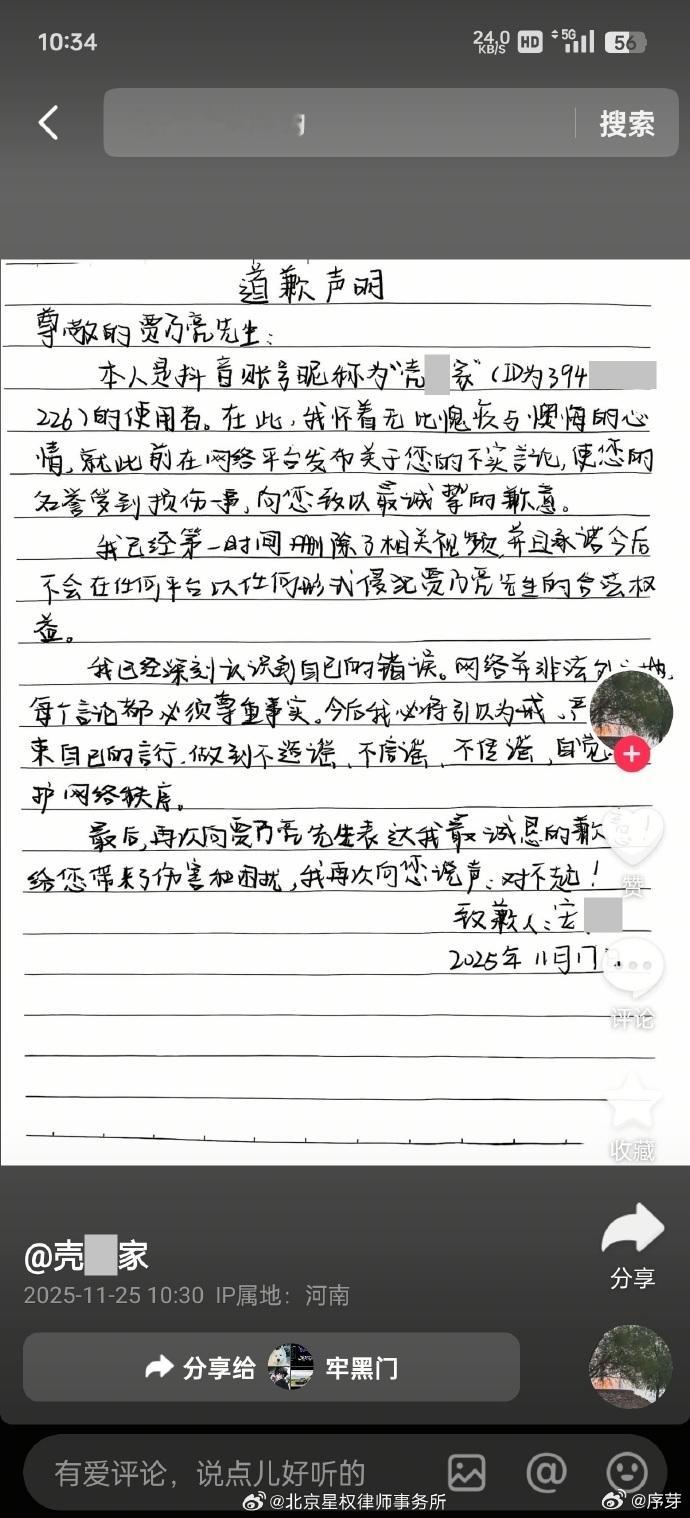 10:34
24.0 KB/S HD 5G 56
搜索
道歉声明
尊敬的贾乃亮先生：
本人是抖音账号昵称为“壳家”（ID为394
226）的使用者。在此，我怀着无比愧疚与懊悔的心
情，就此前在网络平台发布关于您的不实言论，使您的
名誉受到损伤一事，向您致以最诚挚的歉意。
我已经第一时间删除了相关视频，并且承诺今后
不会在任何平台以任何形式侵犯贾乃亮先生的合法权
益。
我已经深刻认识到自己的错误。网络并非法外之地，
每个言论都必须尊重事实。今后我必将引以为戒、严
束自己的言行，做到不造谣、不信谣、不传谣，自觉
护网络秩序。
最后，再次向贾乃亮先生表达我最诚恳的歉
给您带来了伤害和困扰，我再次向您说声：对不起！
致歉人：宏
2025年11月17
赞
评论
收藏
分享
@壳家
2025-11-25 10:30 IP属地：河南
分享给 牢黑门
有爱评论，说点儿好听的
@北京星权律师事务所
@序芽